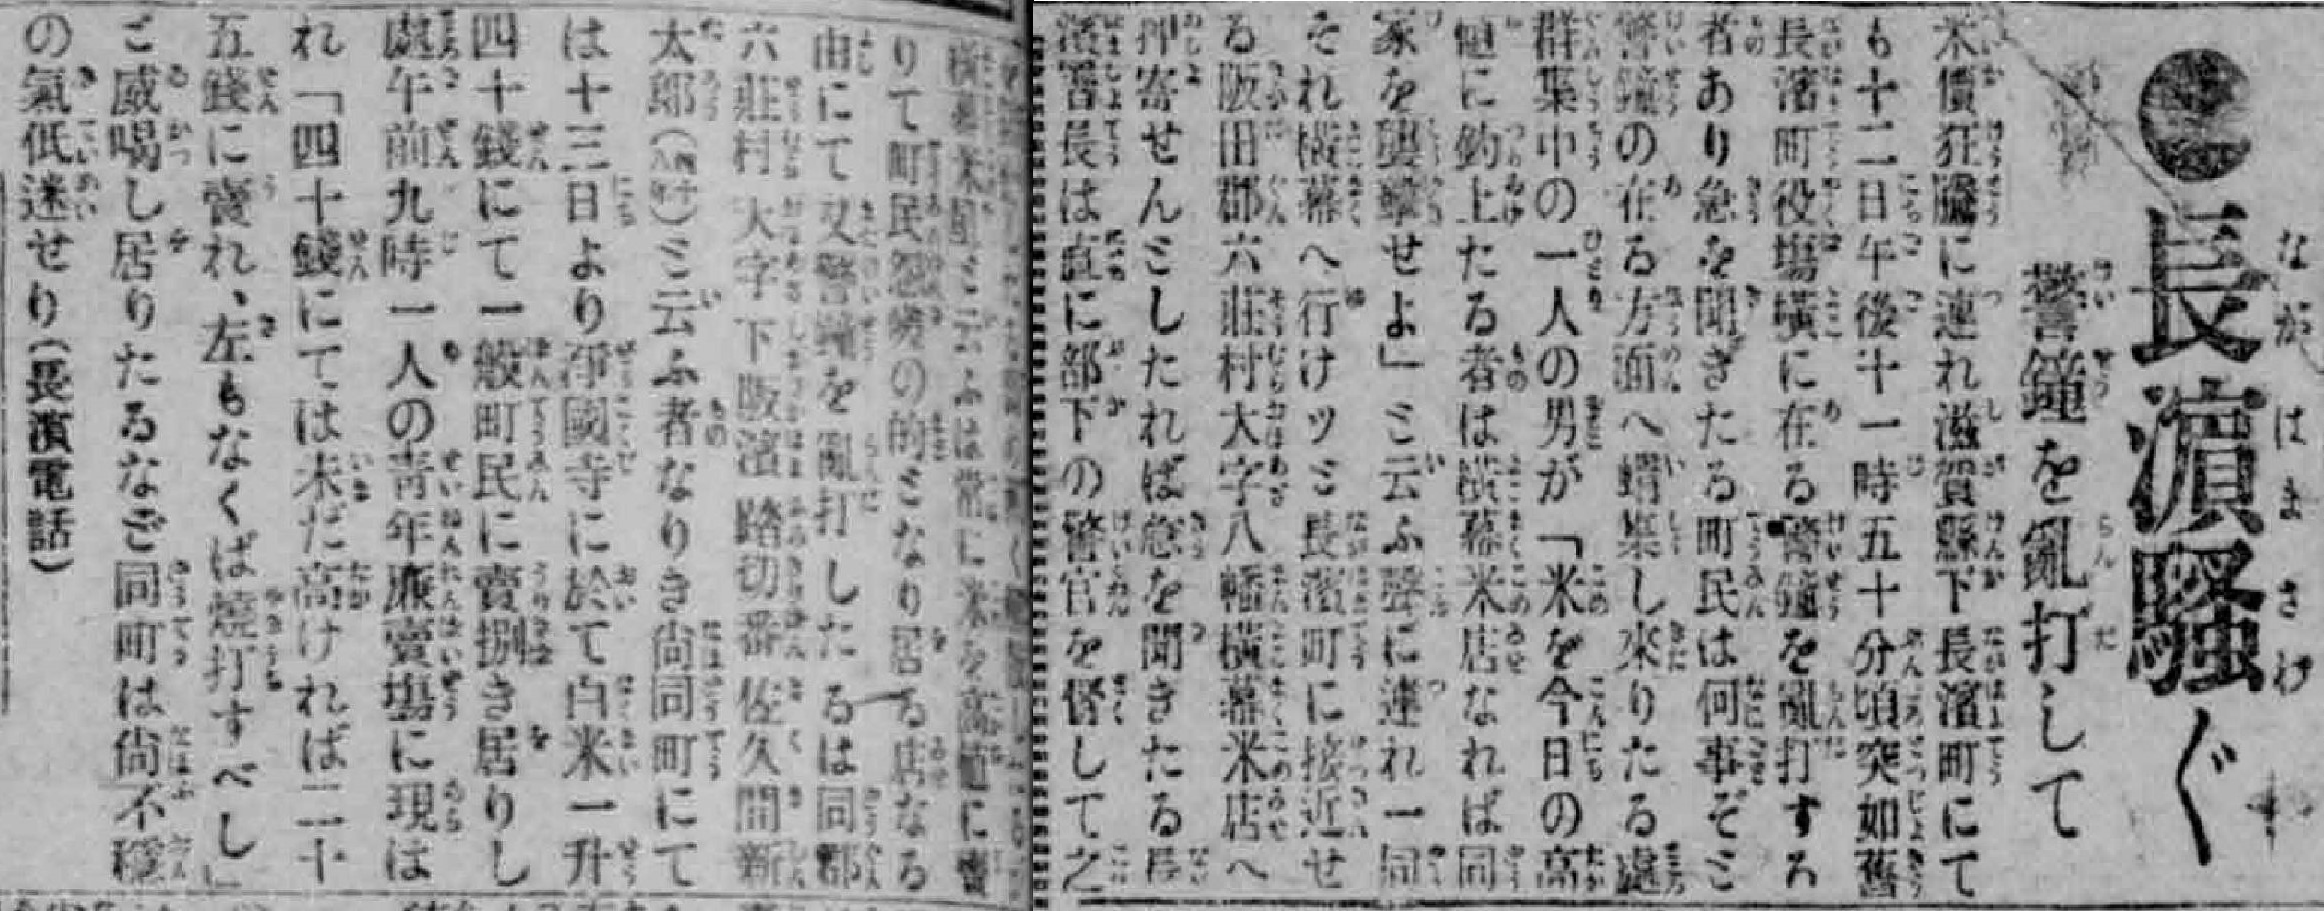 ●長濱騷ぐ
警鐘を亂打して
米價狂騰に連れ滋賀縣下長濱町にて
も十二日午後十一時五十分頃突如舊
長濱町役塲橫に在る警鐘を亂打する
者あり急を聞きたる町民は何事ぞミ
警鐘の在る方面へ蝟集し來りたる處
群集中の一人の男が「米を今日の高
値に釣上たる者は橫幕米店なれば同
家を襲擊せよ」ミ云ふ聲に連れ一同
それ橫幕へ行けッミ長濱町に接近せ
る阪田郡六莊村大字八幡橫幕米店へ
押寄せんミしたれば急を聞きたる長
濱署長は直に部下の警官を督して之
橫幕米屋ミ云ふは常に米を高値に賣
りて町民怨嗟の的ミなり居る店なる
由にて又警鐘を亂打したるは同郡
六莊村大字下阪濱踏切番佐久間新
太郎(四十八年)ミ云ふ者なりき尙同町にて
は十三日より淨國寺に於て白米一升
四十錢にて一般町民に賣捌き居りし
處午前九時一人の靑年廉賣塲に現は
れ「四十錢にては未だ高ければ二十
五錢に賣れ、左もなくば燒打すべし」
ミ威喝し居りたるなご同町は尙不穩
の氣低迷せり(長濱電話)